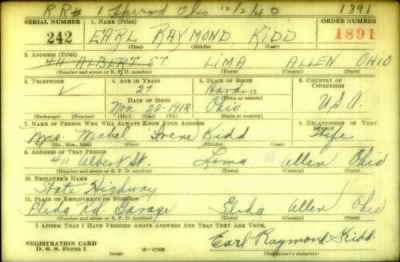 RR# 1 Harrod Ohio 12/2/40 1891
SERIAL NUMBER 1. NAME (Print) ORDER NUMBER
242 EARL RAYMOND KIDD 1891
(First) (Middle) (Last)
2. ADDRESS (Print)
411 ALBERT ST. LIMA ALLEN OHIO
(Number and street or R. F. D. number) (Town) (County) (State)
3. TELEPHONE 4. AGE IN YEARS 5. PLACE OF BIRTH 6. COUNTRY OF CITIZENSHIP
27 Hardin
DATE OF BIRTH (Town or county)
Nov. 22-1912 Ohio U.S.A.
(Exchange) (Number) (Mo.) (Day) (Yr.) (State or country)
7. NAME OF PERSON WHO WILL ALWAYS KNOW YOUR ADDRESS 8. RELATIONSHIP OF THAT PERSON
Mrs. Mabel Irene Kidd Wife
(Mr., Mrs., Miss) (First) (Middle) (Last)
9. ADDRESS OF THAT PERSON
411 Albert St. Lima Allen Ohio
(Number and street or R. F. D. number) (Town) (County) (State)
10. EMPLOYER'S NAME
State Highway
11. PLACE OF EMPLOYMENT OR BUSINESS
Elida Rd. Garage Elida Allen Ohio
(Number and street or R. F. D. number) (Town) (County) (State)
I AFFIRM THAT I HAVE VERIFIED ABOVE ANSWERS AND THAT THEY ARE TRUE.
REGISTRATION CARD
D. S. S. Form 1 Earl Raymond Kidd
(Registrant's signature)